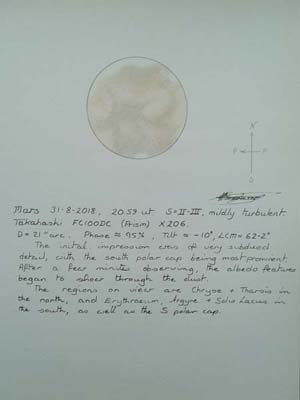 N
P
F
Mars 31-8-2018, 20:59 ut. S=II-III, mildly turbulent.
Takahashi FC100DC (Prism) x206.
D=21"arc. Phase ≈ 95%, Tilt ≈ -10°, LCM=62.2°
The initial impression was of very subdued
detail, with the south polar cap being most prominent.
After a few minutes observing, the albedo features
began to show through the dust.
The regions on view are Chryse + Tharsis in
the north, and Erythraeum, Argyre + Solis Lacus in
the south, as well as the S polar cap.